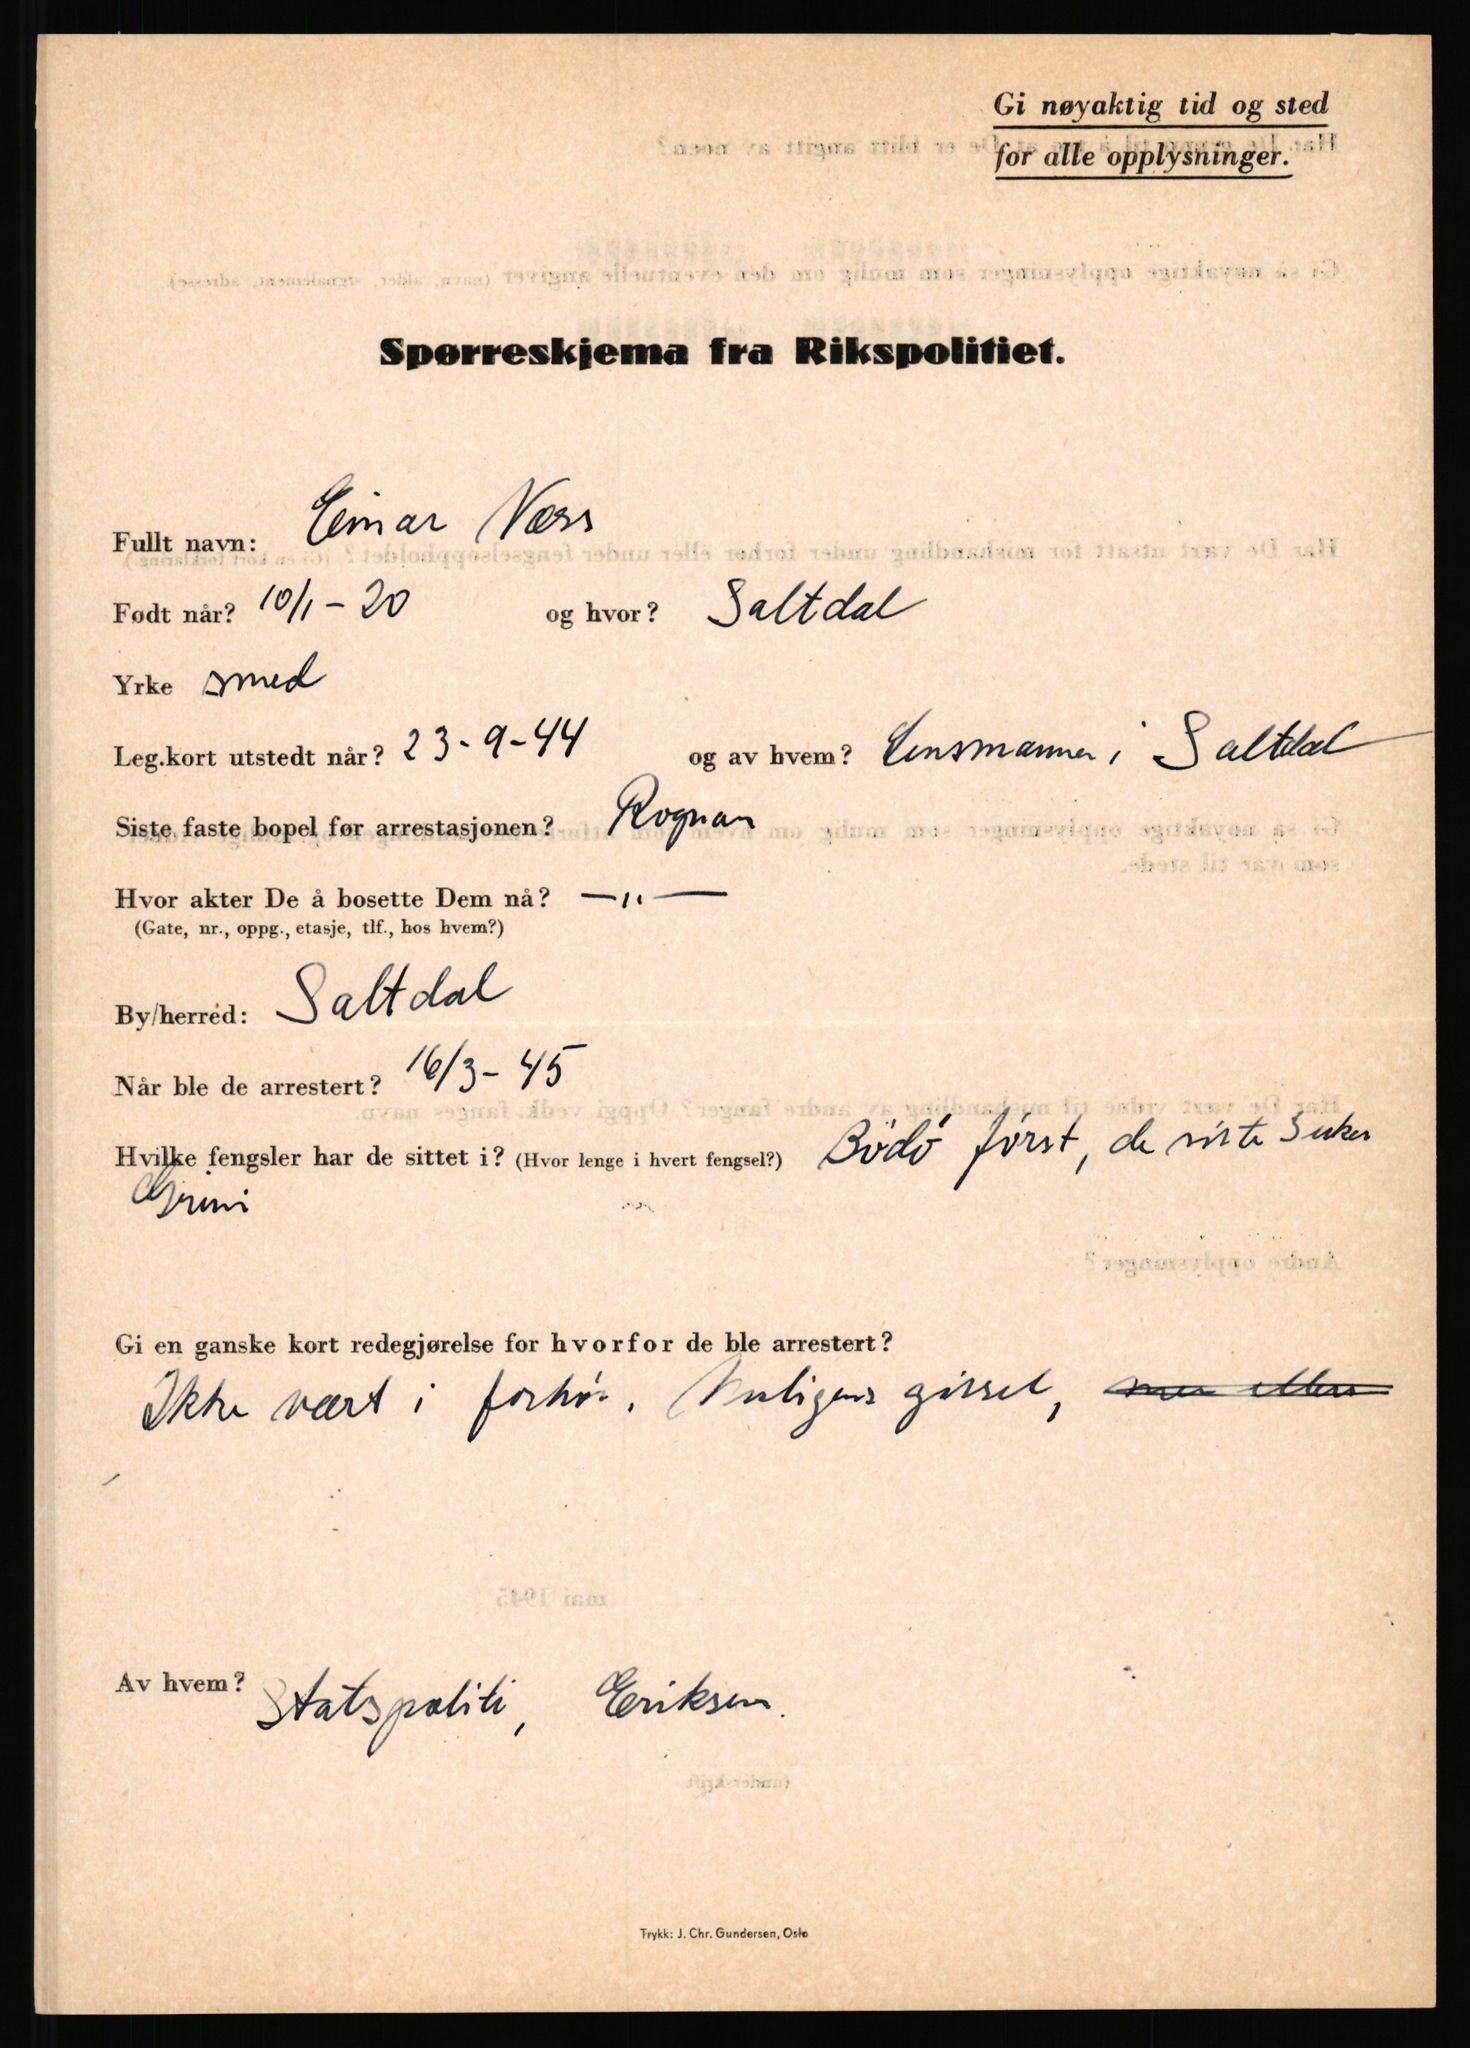 Gi nøyaktig tid og sted
for alle opplysninger.
Spørreskjema fra Rikspolitiet.
Fullt navn: Einar Næss
Født når? 10/1-20 og hvor? Saltdal
Yrke smed
Leg.kort utstedt når? 23-9-44 og av hvem? Lensmannen i Saltdal
Siste faste bopel før arrestasjonen? Rognan
Hvor akter De å bosette Dem nå? —"—
(Gate, nr., oppg., etasje, tlf., hos hvem?)
By/herred: Saltdal
Når ble de arrestert? 16/3-45
Hvilke fengsler har de sittet i? (Hvor lenge i hvert fengsel?) Bodö först, de siste 3 uker
Grini
Gi en ganske kort redegjørelse for hvorfor de ble arrestert?
Ikke vært i forhör. Muligens gissel, men ellers
Av hvem? Statspoliti, Eriksen.
Trykk: J. Chr. Gundersen, Oslo